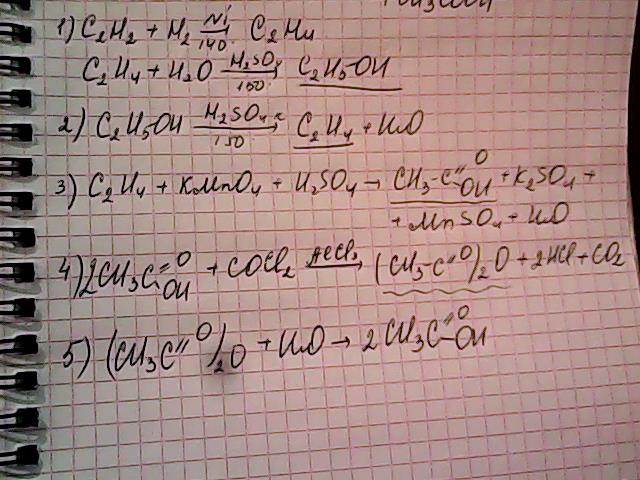 1) C₂H₂ + H₂ Ni/140 → C₂H₄
C₂H₄ + H₂O H₂SO₄/150 → C₂H₅OH
2) C₂H₅OH H₂SO₄ к/150 → C₂H₄ + H₂O
3) C₂H₄ + KMnO₄ + H₂SO₄ → CH₃-C=O OH + K₂SO₄ +
+ MnSO₄ + H₂O
4) 2CH₃C=O OH + COCl₂ AlCl₃ → (CH₃-C=O)₂O + 2HCl + CO₂
5) (CH₃C=O)₂O + H₂O → 2CH₃C=O OH